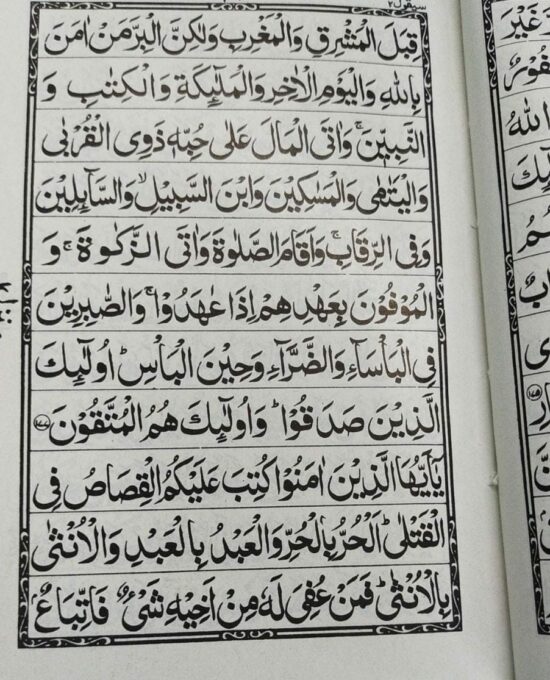 سيقول٢
قِبَلَ الْمَشْرِقِ وَالْمَغْرِبِ وَلٰكِنَّ الْبِرَّ مَنْ اٰمَنَ
بِاللّٰهِ وَالْيَوْمِ الْاٰخِرِ وَالْمَلٰٓئِكَةِ وَالْكِتٰبِ وَ
النَّبِيّٖنَ ۚ وَاٰتَى الْمَالَ عَلٰى حُبِّهٖ ذَوِى الْقُرْبٰى
وَالْيَتٰمٰى وَالْمَسٰكِيْنَ وَابْنَ السَّبِيْلِ ۙ وَالسَّآئِلِيْنَ
وَفِى الرِّقَابِ ۚ وَاَقَامَ الصَّلٰوةَ وَاٰتَى الزَّكٰوةَ ۚ وَ
الْمُوْفُوْنَ بِعَهْدِهِمْ اِذَا عٰهَدُوْا ۚ وَالصّٰبِرِيْنَ
فِى الْبَاْسَآءِ وَالضَّرَّآءِ وَحِيْنَ الْبَاْسِ ؕ اُولٰٓئِكَ
الَّذِيْنَ صَدَقُوْا ؕ وَاُولٰٓئِكَ هُمُ الْمُتَّقُوْنَ ۝۱۷۷
يٰٓاَيُّهَا الَّذِيْنَ اٰمَنُوْا كُتِبَ عَلَيْكُمُ الْقِصَاصُ فِى
الْقَتْلٰى ؕ اَلْحُرُّ بِالْحُرِّ وَالْعَبْدُ بِالْعَبْدِ وَالْاُنْثٰى
بِالْاُنْثٰى ؕ فَمَنْ عُفِىَ لَهٗ مِنْ اَخِيْهِ شَىْءٌ فَاتِّبَاعٌۢ